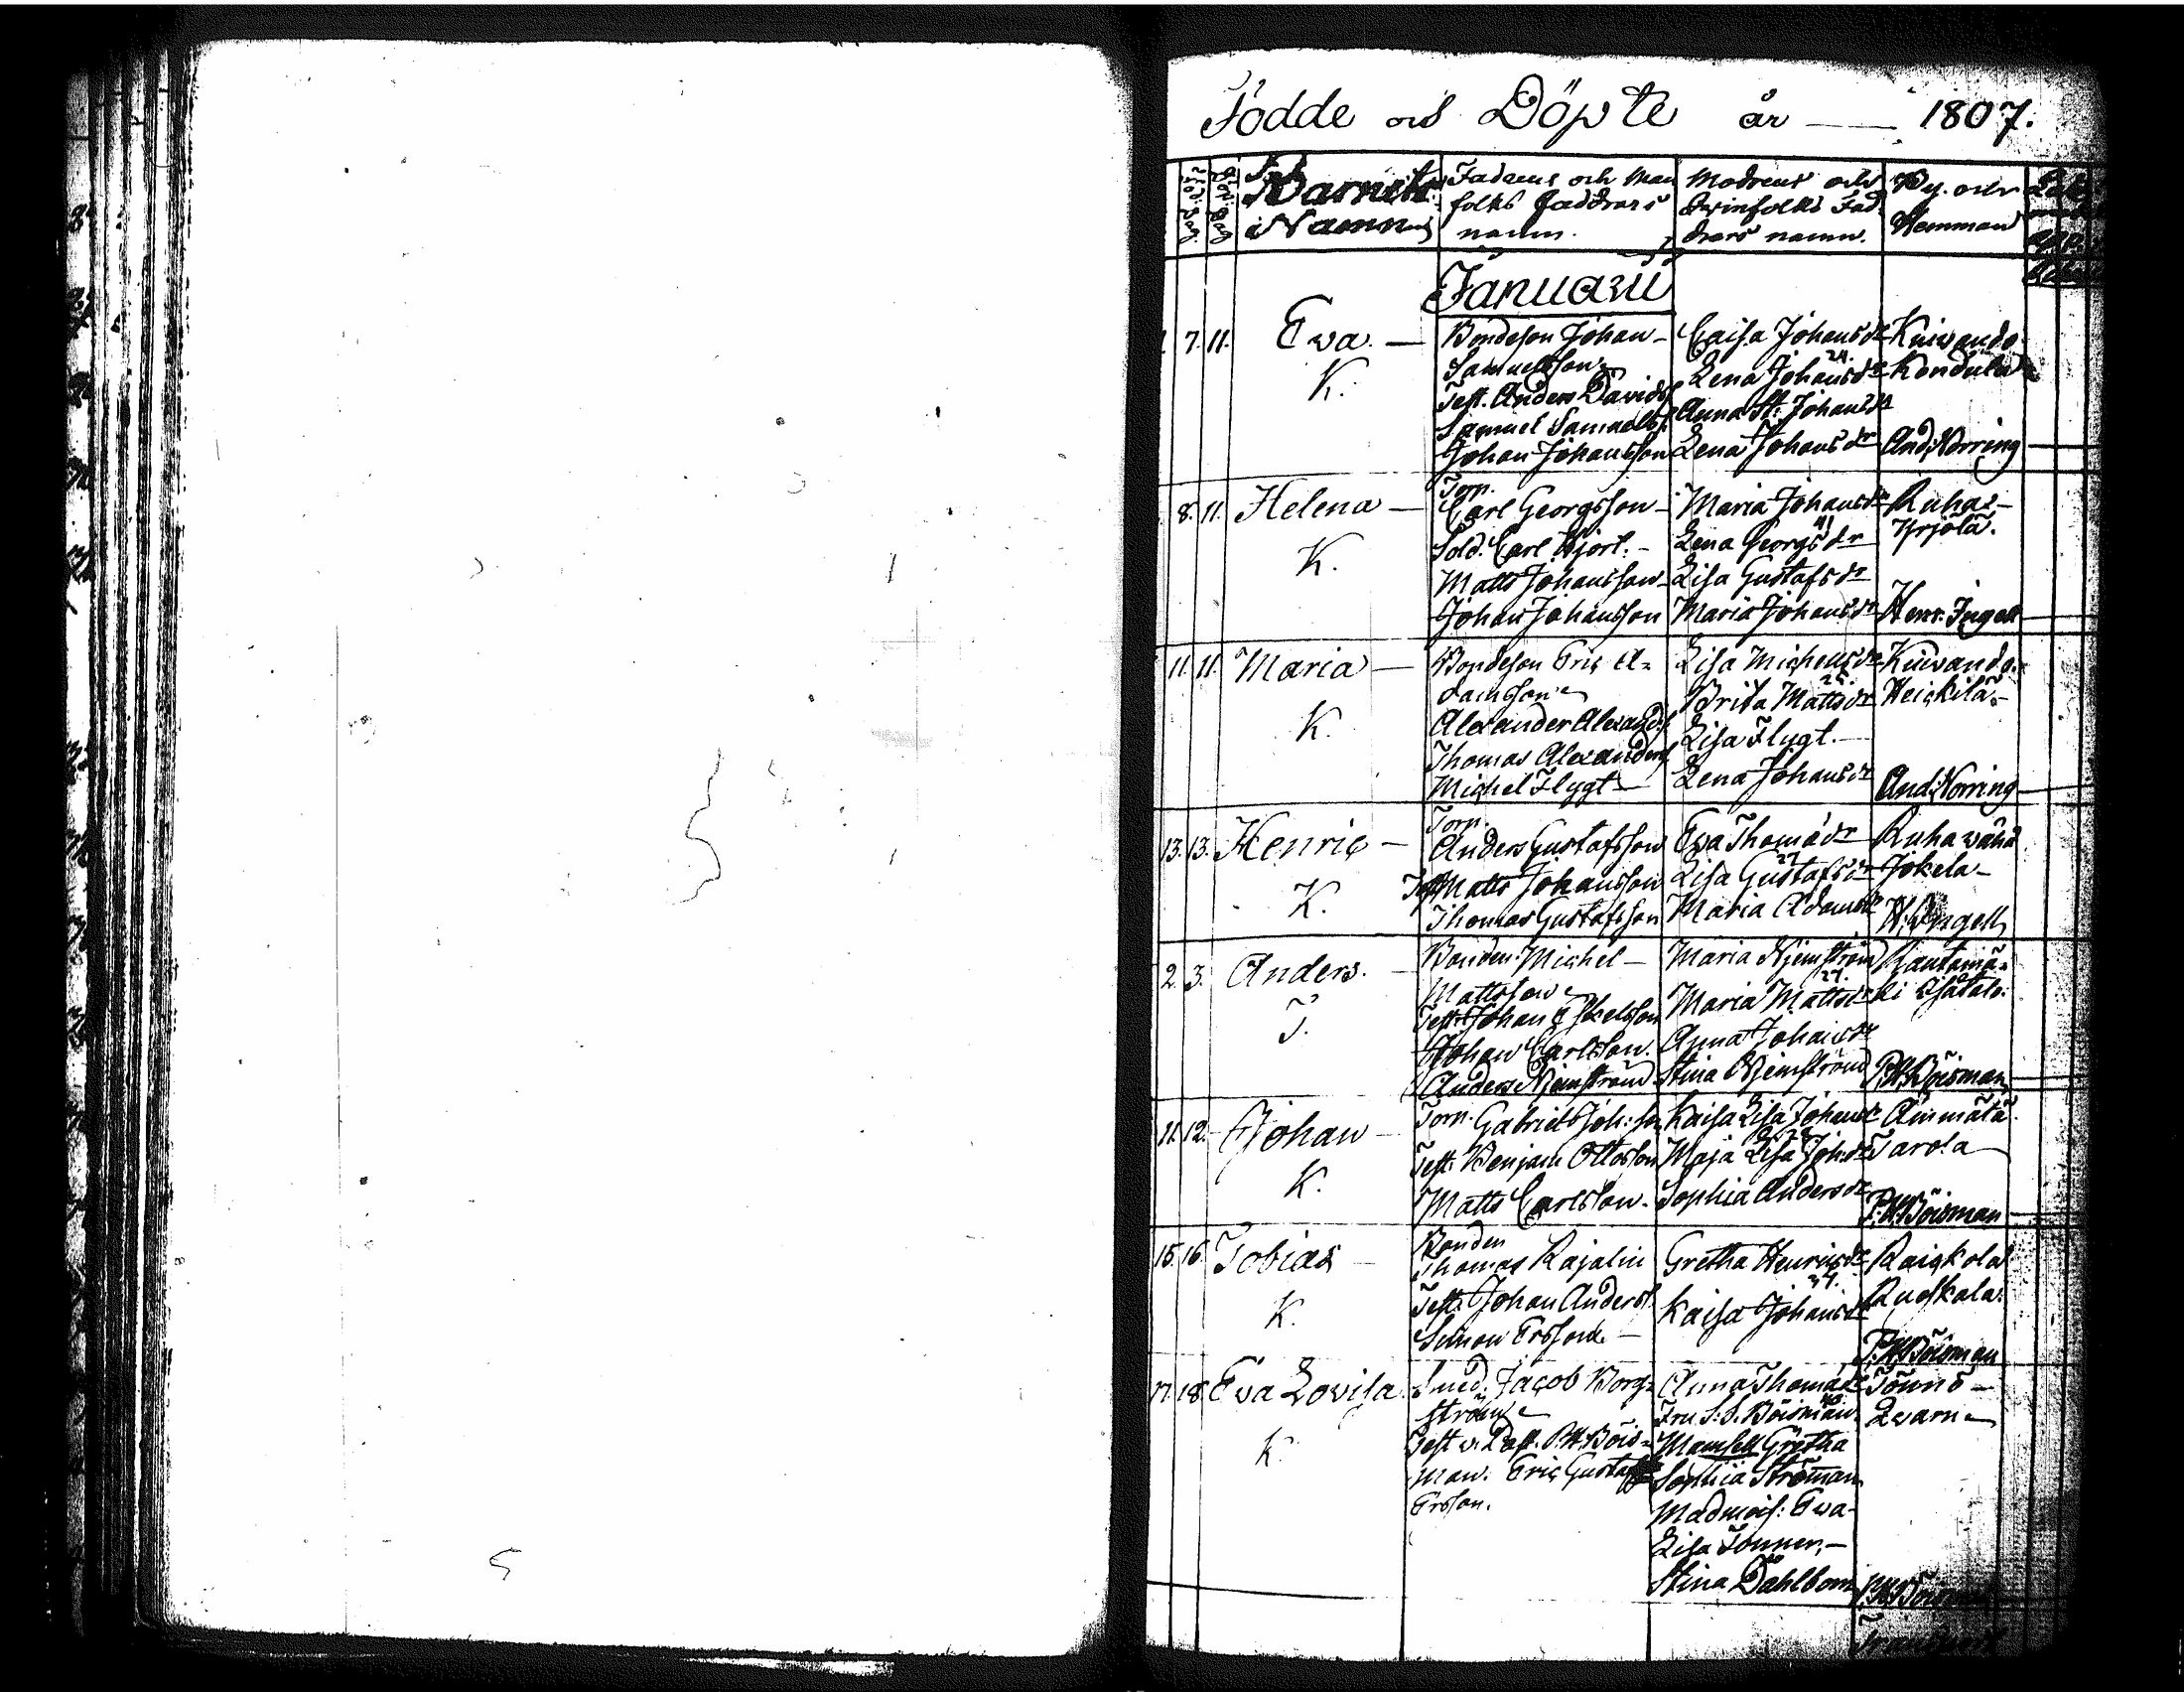 Födde och Döpte år — 1807.
Född. Dag
Döp. Dag
Barnets Namn
Fadrens och Man folks Faddrars namn.
Modrens och Qwinfolks Fad drars namn.
By. och Hemman
Januarii
7. 11. Eva. — K.
Bondeson Johan
Samuelsson
Test. Anders Davids
Samuel Samuels
Johan Johansson
Caisa Johansdr
24.
Lena Johansdr
Anna St. Johansdr
Lena Johansdr
Kiuvando
Kondula
And: Norring
8. 11. Helena — K.
Torp.
Carl Georgsson
Sold. Carl Hjort. —
Matts Johansson
Johan Johansson
Maria Johansdr
41
Lena Georgsdr
Lisa Gustafsdr
Maria Johansdr
Ruha-
Yrjölä.
Henr. Ingell
11. 11. Maria — K.
Bondeson Eric A-
damsson
Alexander Alexands
Thomas Alexanders
Michel Flygt
Lisa Michelsdr
Brita Mattsdr
Lisa Flygt. —
Lena Johansdr
Kiuvando
Heickilä
And: Norring
13. 13. Henric — K.
Torp.
Anders Gustafsson
Test Matts Johansson
Thomas Gustafsson
Eva Thomadr
27
Lisa Gustafsdr
Maria Adamsdr
Ruhawäha
Jokela
H: Ingell
2. 3. Anders. T.
Bonden Michel —
Mattsson
Test. Johan
Johan Carlsson.
Anders Njemström
Maria Njemström
27.
Maria Mattsdr
Anna Johansdr
Stina Njemström
Rautamä-
ki
P.H. Böisman
11. 12. Johan — K.
Torp. Gabriel Joh: son
Test. Benjam Ottosson
Matts Carlsson.
Kaisa Lisa Johansdr
Maja Lisa Joh:dr
Sophia Andersdr
Äinmälä
Tarola
P.H. Böisman
15. 16. Tobias — K.
Bonden
Thomas Rajalin
Test. Johan Anders
Simon Ersson —
Gretha Henricsdr
Kaisa Johansdr
Raiskola
Ruoskala
P.H. Böisman
17. 18. Eva Lovisa. K.
Smed. Jacob Borg-
ström
Test v. Past. P.H. Böis-
man. Eric Gustaf
Ersson.
Anna Thomadr
Fru S: S. Böisman
Mamsell Gretha
Sophia Ströman
Madmois: Eva
Lisa Tonner, —
Stina Dahlbom
Töunö —
Qvarn
P.H. Böisman